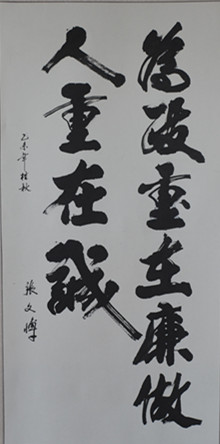 為政重在廉做
人重在誠
乙未年桂秋
张文肄